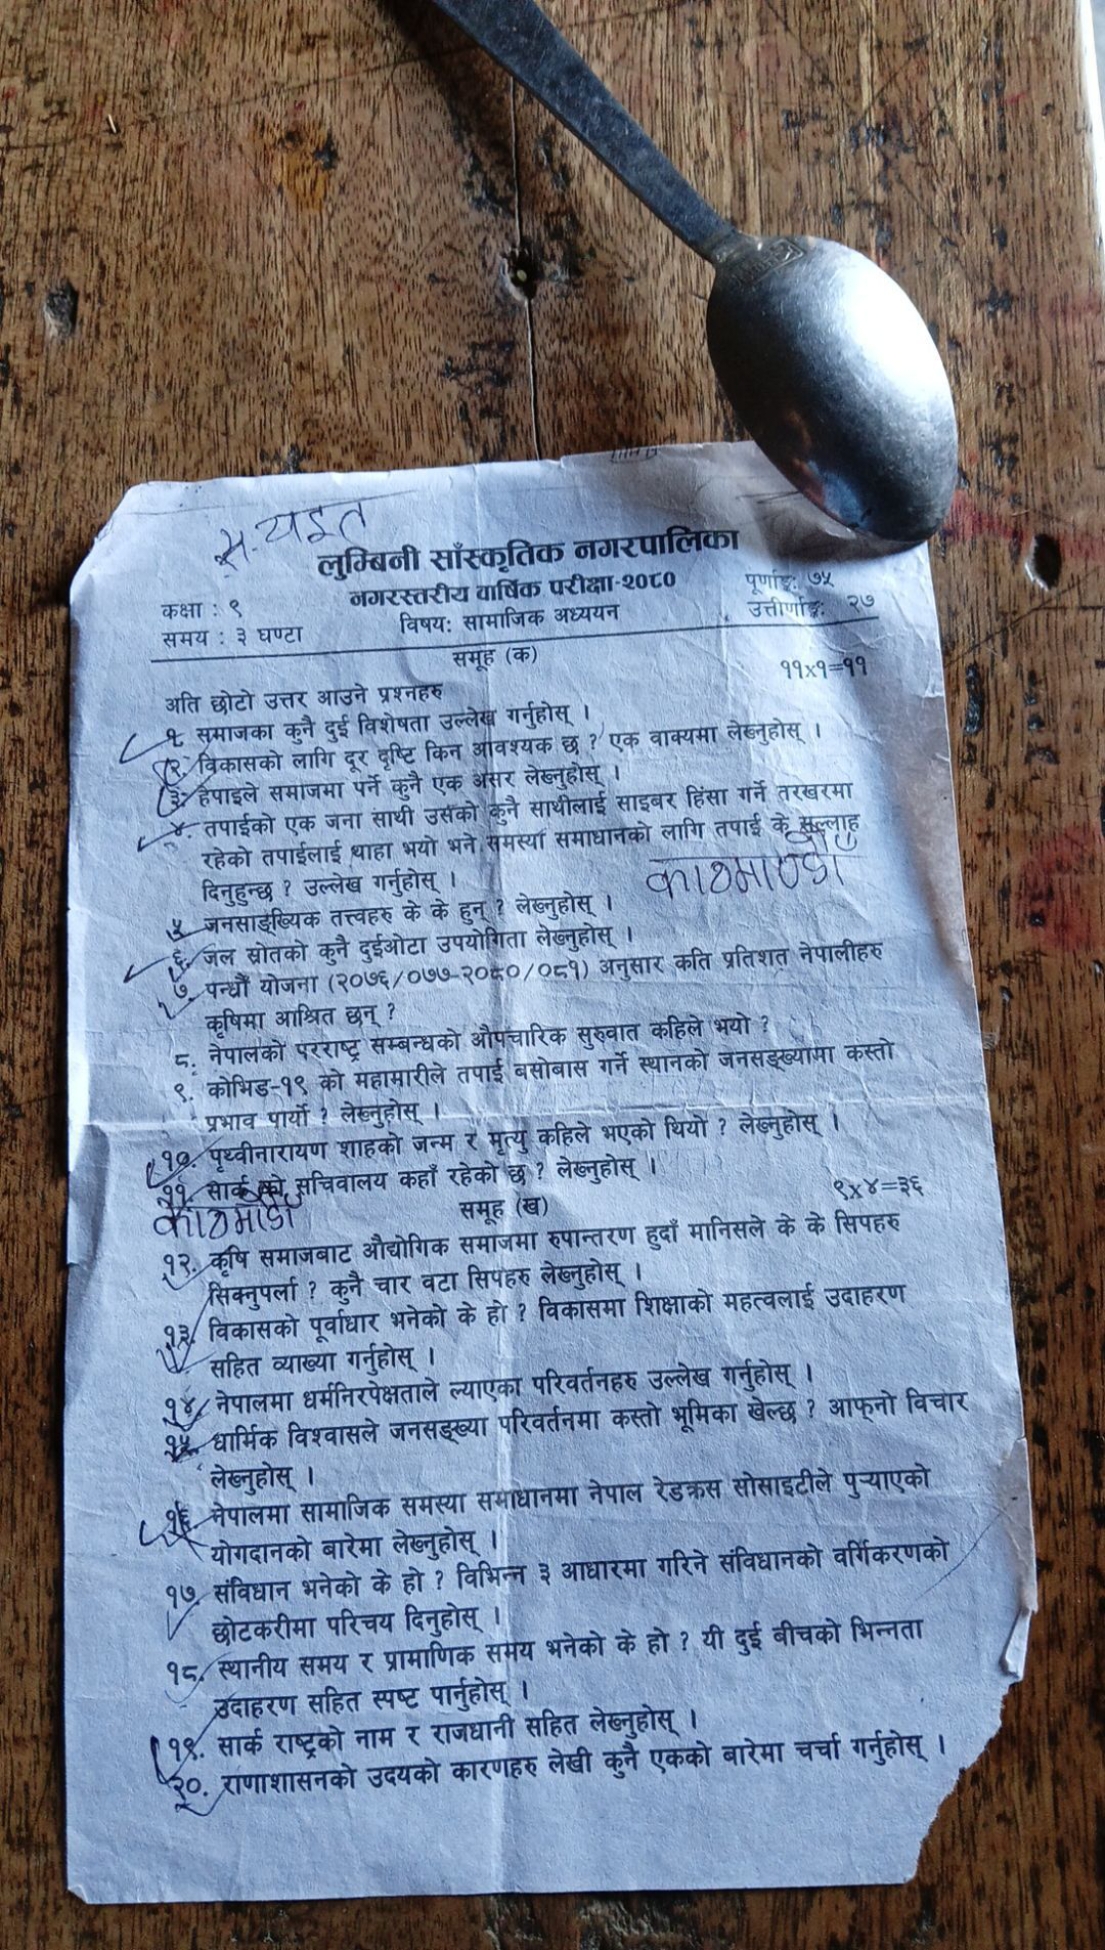 लुम्बिनी साँस्कृतिक नगरपालिका
नगरस्तरीय वार्षिक परीक्षा-२०८०
कक्षा : ९
विषय: सामाजिक अध्ययन
पूर्णाङ्क: ७५
समय : ३ घण्टा
उत्तीर्णाङ्क: २७
समूह (क)
अति छोटो उत्तर आउने प्रश्नहरु
११x१=११
१. समाजका कुनै दुई विशेषता उल्लेख गर्नुहोस् ।
२. विकासको लागि दूर दृष्टि किन आवश्यक छ ? एक वाक्यमा लेख्नुहोस् ।
३. हैपाइले समाजमा पर्ने कुनै एक असर लेख्नुहोस् ।
४. तपाईको एक जना साथी उसको कुनै साथीलाई साइबर हिंसा गर्ने तरखरमा
रहेको तपाईलाई थाहा भयो भने समस्या समाधानको लागि तपाई के सुल्लाह
दिनुहुन्छ ? उल्लेख गर्नुहोस् ।
काठमाण्डौ
५. जनसाङ्ख्यिक तत्त्वहरु के के हुन् ? लेख्नुहोस् ।
६. जल स्रोतको कुनै दुईओटा उपयोगिता लेख्नुहोस् ।
७. पन्ध्रौं योजना (२०७६/०७७-२०८०/०८१) अनुसार कति प्रतिशत नेपालीहरु
कृषिमा आश्रित छन् ?
८. नेपालको परराष्ट्र सम्बन्धको औपचारिक सुरुवात कहिले भयो ?
९. कोभिड-१९ को महामारीले तपाई बसोबास गर्ने स्थानको जनसङ्ख्यामा कस्तो
प्रभाव पार्यो ? लेख्नुहोस् ।
१०. पृथ्वीनारायण शाहको जन्म र मृत्यु कहिले भएको थियो ? लेख्नुहोस् ।
११. सार्क को सचिवालय कहाँ रहेको छ ? लेख्नुहोस् ।
काठमाडौ
समूह (ख)
९x४=३६
१२. कृषि समाजबाट औद्योगिक समाजमा रुपान्तरण हुदाँ मानिसले के के सिपहरु
सिक्नुपर्ला ? कुनै चार वटा सिपहरु लेख्नुहोस् ।
१३. विकासको पूर्वाधार भनेको के हो ? विकासमा शिक्षाको महत्वलाई उदाहरण
सहित व्याख्या गर्नुहोस् ।
१४. नेपालमा धर्मनिरपेक्षताले ल्याएका परिवर्तनहरु उल्लेख गर्नुहोस् ।
१५. धार्मिक विश्वासले जनसङ्ख्या परिवर्तनमा कस्तो भूमिका खेल्छ ? आफ्नो विचार
लेख्नुहोस् ।
१६. नेपालमा सामाजिक समस्या समाधानमा नेपाल रेडक्रस सोसाइटीले पुऱ्याएको
योगदानको बारेमा लेख्नुहोस् ।
१७. संविधान भनेको के हो ? विभिन्न ३ आधारमा गरिने संविधानको वर्गिकरणको
छोटकरीमा परिचय दिनुहोस् ।
१८. स्थानीय समय र प्रामाणिक समय भनेको के हो ? यी दुई बीचको भिन्नता
उदाहरण सहित स्पष्ट पार्नुहोस् ।
१९. सार्क राष्ट्रको नाम र राजधानी सहित लेख्नुहोस् ।
२०. राणाशासनको उदयको कारणहरु लेखी कुनै एकको बारेमा चर्चा गर्नुहोस् ।